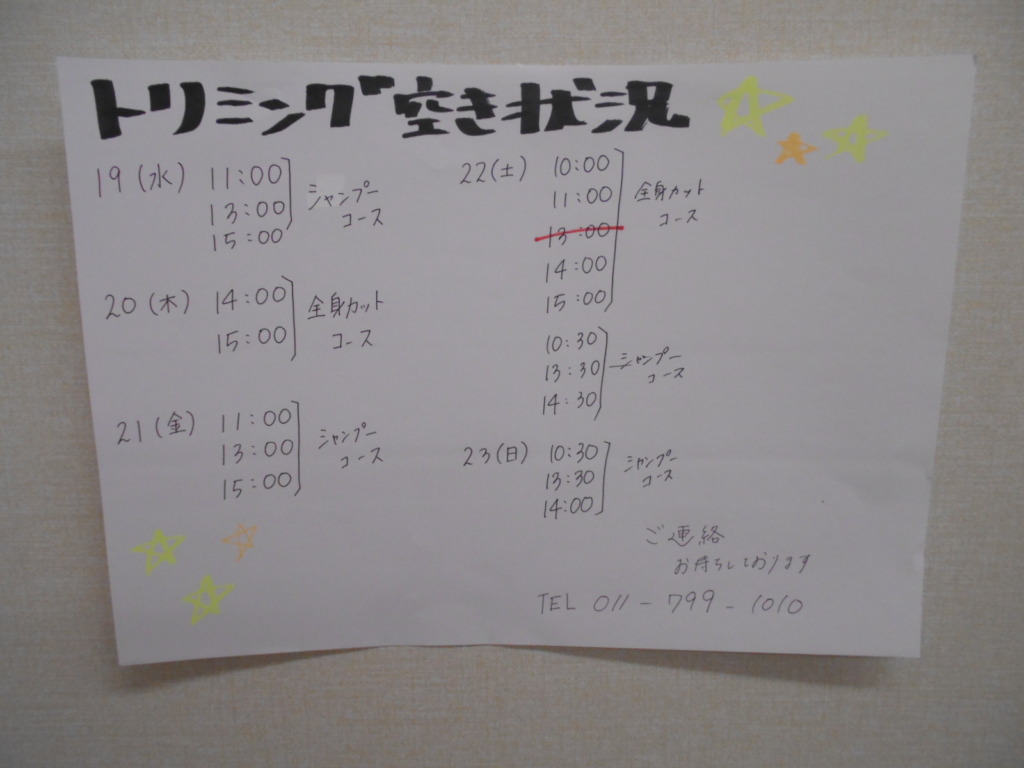 トリミング空き状況
19(水) 11:00
13:00
15:00
シャンプー
コース
20(木) 14:00
15:00
全身カット
コース
21(金) 11:00
13:00
15:00
シャンプー
コース
22(土) 10:00
11:00
13:00
14:00
15:00
全身カット
コース
10:30
13:30
14:30
シャンプー
コース
23(日) 10:30
13:30
14:00
シャンプー
コース
ご連絡
お待ちしております
TEL 011-799-1010